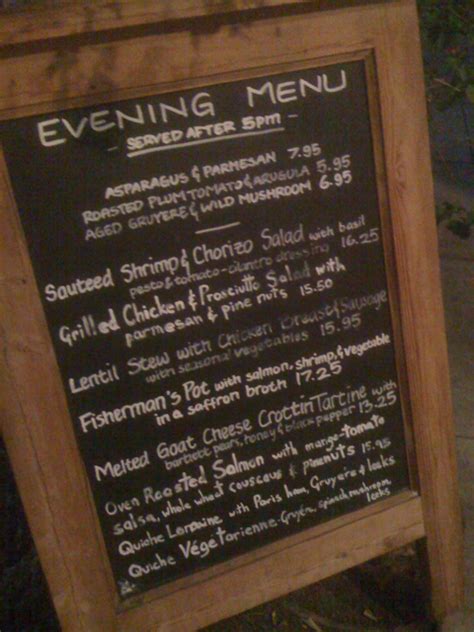 EVENING MENU
- SERVED AFTER 5PM -
ASPARAGUS & PARMESAN 7.95
ROASTED PLUM TOMATO & ARUGULA 5.95
AGED GRUYERE & WILD MUSHROOM 6.95
Sauteed Shrimp & Chorizo Salad with basil
pesto & tomato-cilantro dressing 16.25
Grilled Chicken & Prosciutto Salad with
parmesan & pine nuts 15.50
Lentil Stew with Chicken Breast & Sausage
with seasonal vegetables 15.95
Fisherman's Pot with salmon, shrimp, & vegetable
in a saffron broth 17.25
Melted Goat Cheese Crottin Tartine with
bartlett pears, honey & black pepper 13.25
Oven Roasted Salmon with mango-tomato
salsa, whole wheat couscous & pinenuts 15.95
Quiche Lorraine with Paris ham, Gruyere & leeks
Quiche Végetarienne-Gruyére, spinach, mushroom,
leeks